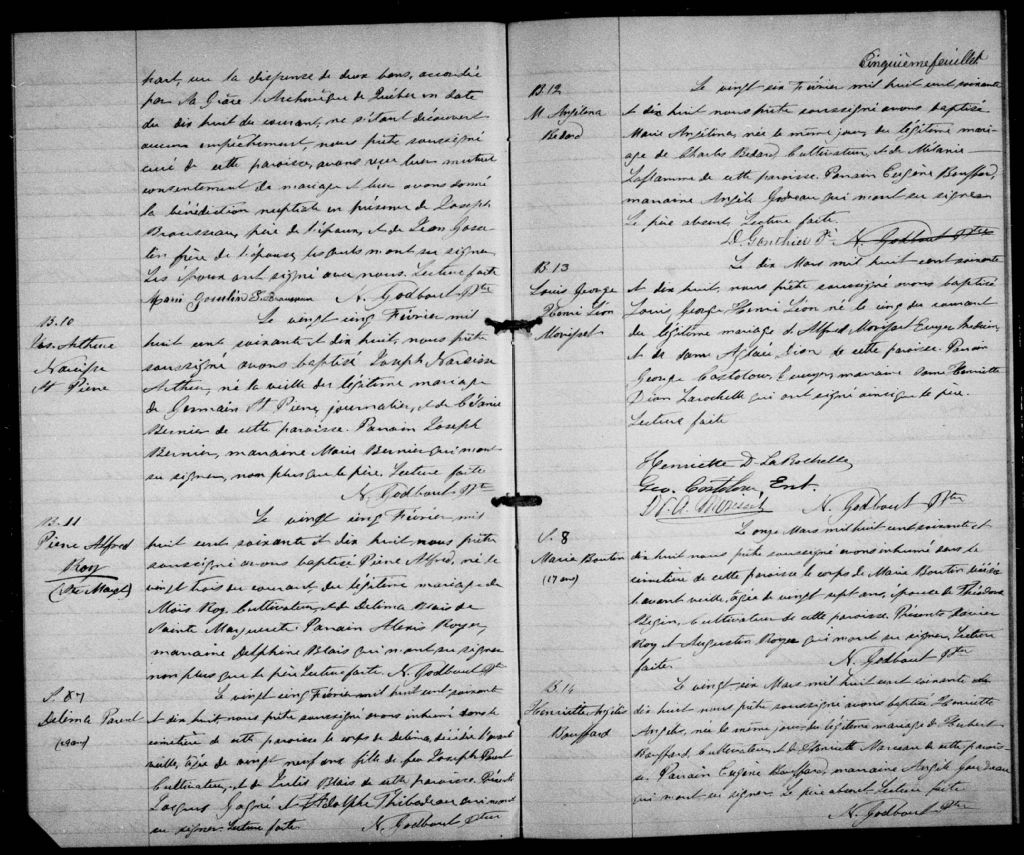 part, vu la dispense de deux bans, accordée
par Sa Grâce l'Archevêque de Québec en date
du dix huit du courant, ne s'étant découvert
aucun empêchement, nous prêtre soussigné
curé de cette paroisse, avons reçu leur mutuel
consentement de mariage et leur avons donné
la bénédiction nuptiale en présence de Joseph
Brousseau, père de l'époux, et de Jean Gosse-
lin frère de l'épouse, lesquels n'ont su signer
Les époux ont signé avec nous. Lecture faite
Marie Gosselin Brousseau N. Godbout Ptre
B. 10
Jos. Arthur
Narcisse
St Pierre
Le vingt cinq Février mil
huit cent soixante et dix huit, nous prêtre
soussigné avons baptisé Joseph Narcisse
Arthur, né la veille du légitime mariage
de Germain St Pierre, journalier, et de
Bernier de cette paroisse. Parrain Joseph
Bernier, marraine Marie Bernier qui n'ont
su signer, non plus que le père. Lecture faite
N. Godbout Ptre
B. 11
Pierre Alfred
Roy
(Ste Margt)
Le vingt cinq Février mil
huit cent soixante et dix huit, nous prêtre
soussigné avons baptisé Pierre Alfred, né le
vingt trois du courant, du légitime mariage de
Moïs Roy, Cultivateur, et de Delima Blais de
Sainte Marguerite. Parrain Alexis Royer,
marraine Delphine Blais qui n'ont su signer
non plus que le père. Lecture faite. N. Godbout Ptre
S. 7
Delima Parent
(29 ans)
Le vingt cinq Février mil huit cent soixante
et dix huit nous prêtre soussigné avons inhumé dans le
cimetière de cette paroisse le corps de Delima, décédée l'avant
veille, âgée de vingt neuf ans fille de feu Joseph Parent
Cultivateur, et de Julie Blais de cette paroisse. Présents
Jacques Gagné et Adolphe Thibodeau qui n'ont
su signer. Lecture faite. N. Godbout Ptre
Cinquième feuillet
B. 12
M. Angelina
Bedard
Le vingt six Février mil huit cent soixante
et dix huit nous prêtre soussigné avons baptisé
Marie Angelina, née le même jour, du légitime mari-
age de Charles Bedard, Cultivateur, et de Mélanie
Laflamme de cette paroisse. Parrain Eugène Bouffard,
marraine Angèle Godreau qui n'ont su signer
Le père absent. Lecture faite.
D. Gonthier P. N. Godbout Ptre
B. 13
Louis George
Henri Léon
Morisset
Le dix Mars mil huit cent soixante
et dix huit, nous prêtre soussigné avons baptisé
Louis George Henri Léon né le cinq du courant
du légitime mariage de Alfred Morisset Ecuyer, Médecin,
et de Dame Aglaée Dion de cette paroisse. Parrain
George Costolow, Ecuyer, marraine Dame Henriette
Dion Larochelle qui ont signé ainsi que le père.
Lecture faite
Henriette D. LaRochelle,
Geo. Costolow Ent.
Morisset N. Godbout Ptre
S. 8
Marie Boutin
(27 ans)
Le onze Mars mil huit cent soixante et
dix huit nous prêtre soussigné avons inhumé dans le
cimetière de cette paroisse le corps de Marie Boutin décédée
l'avant veille, âgée de vingt sept ans, épouse de Théodore
Begin, Cultivateur de cette paroisse. Présents Xavier
Roy et Augustin Royer qui n'ont su signer. Lecture
faite. N. Godbout Ptre
B. 14
Henriette Angèle
Bouffard
Le vingt six Mars mil huit cent soixante
dix huit nous prêtre soussigné avons baptisé Henriette
Angèle, née le même jour du légitime mariage de Hubert
Bouffard, Cultivateur, et de Henriette Marceau de cette parois-
se. Parrain Eugène Bouffard, marraine Angèle Gaudreau
qui n'ont su signer. Le père absent. Lecture faite
N. Godbout Ptre